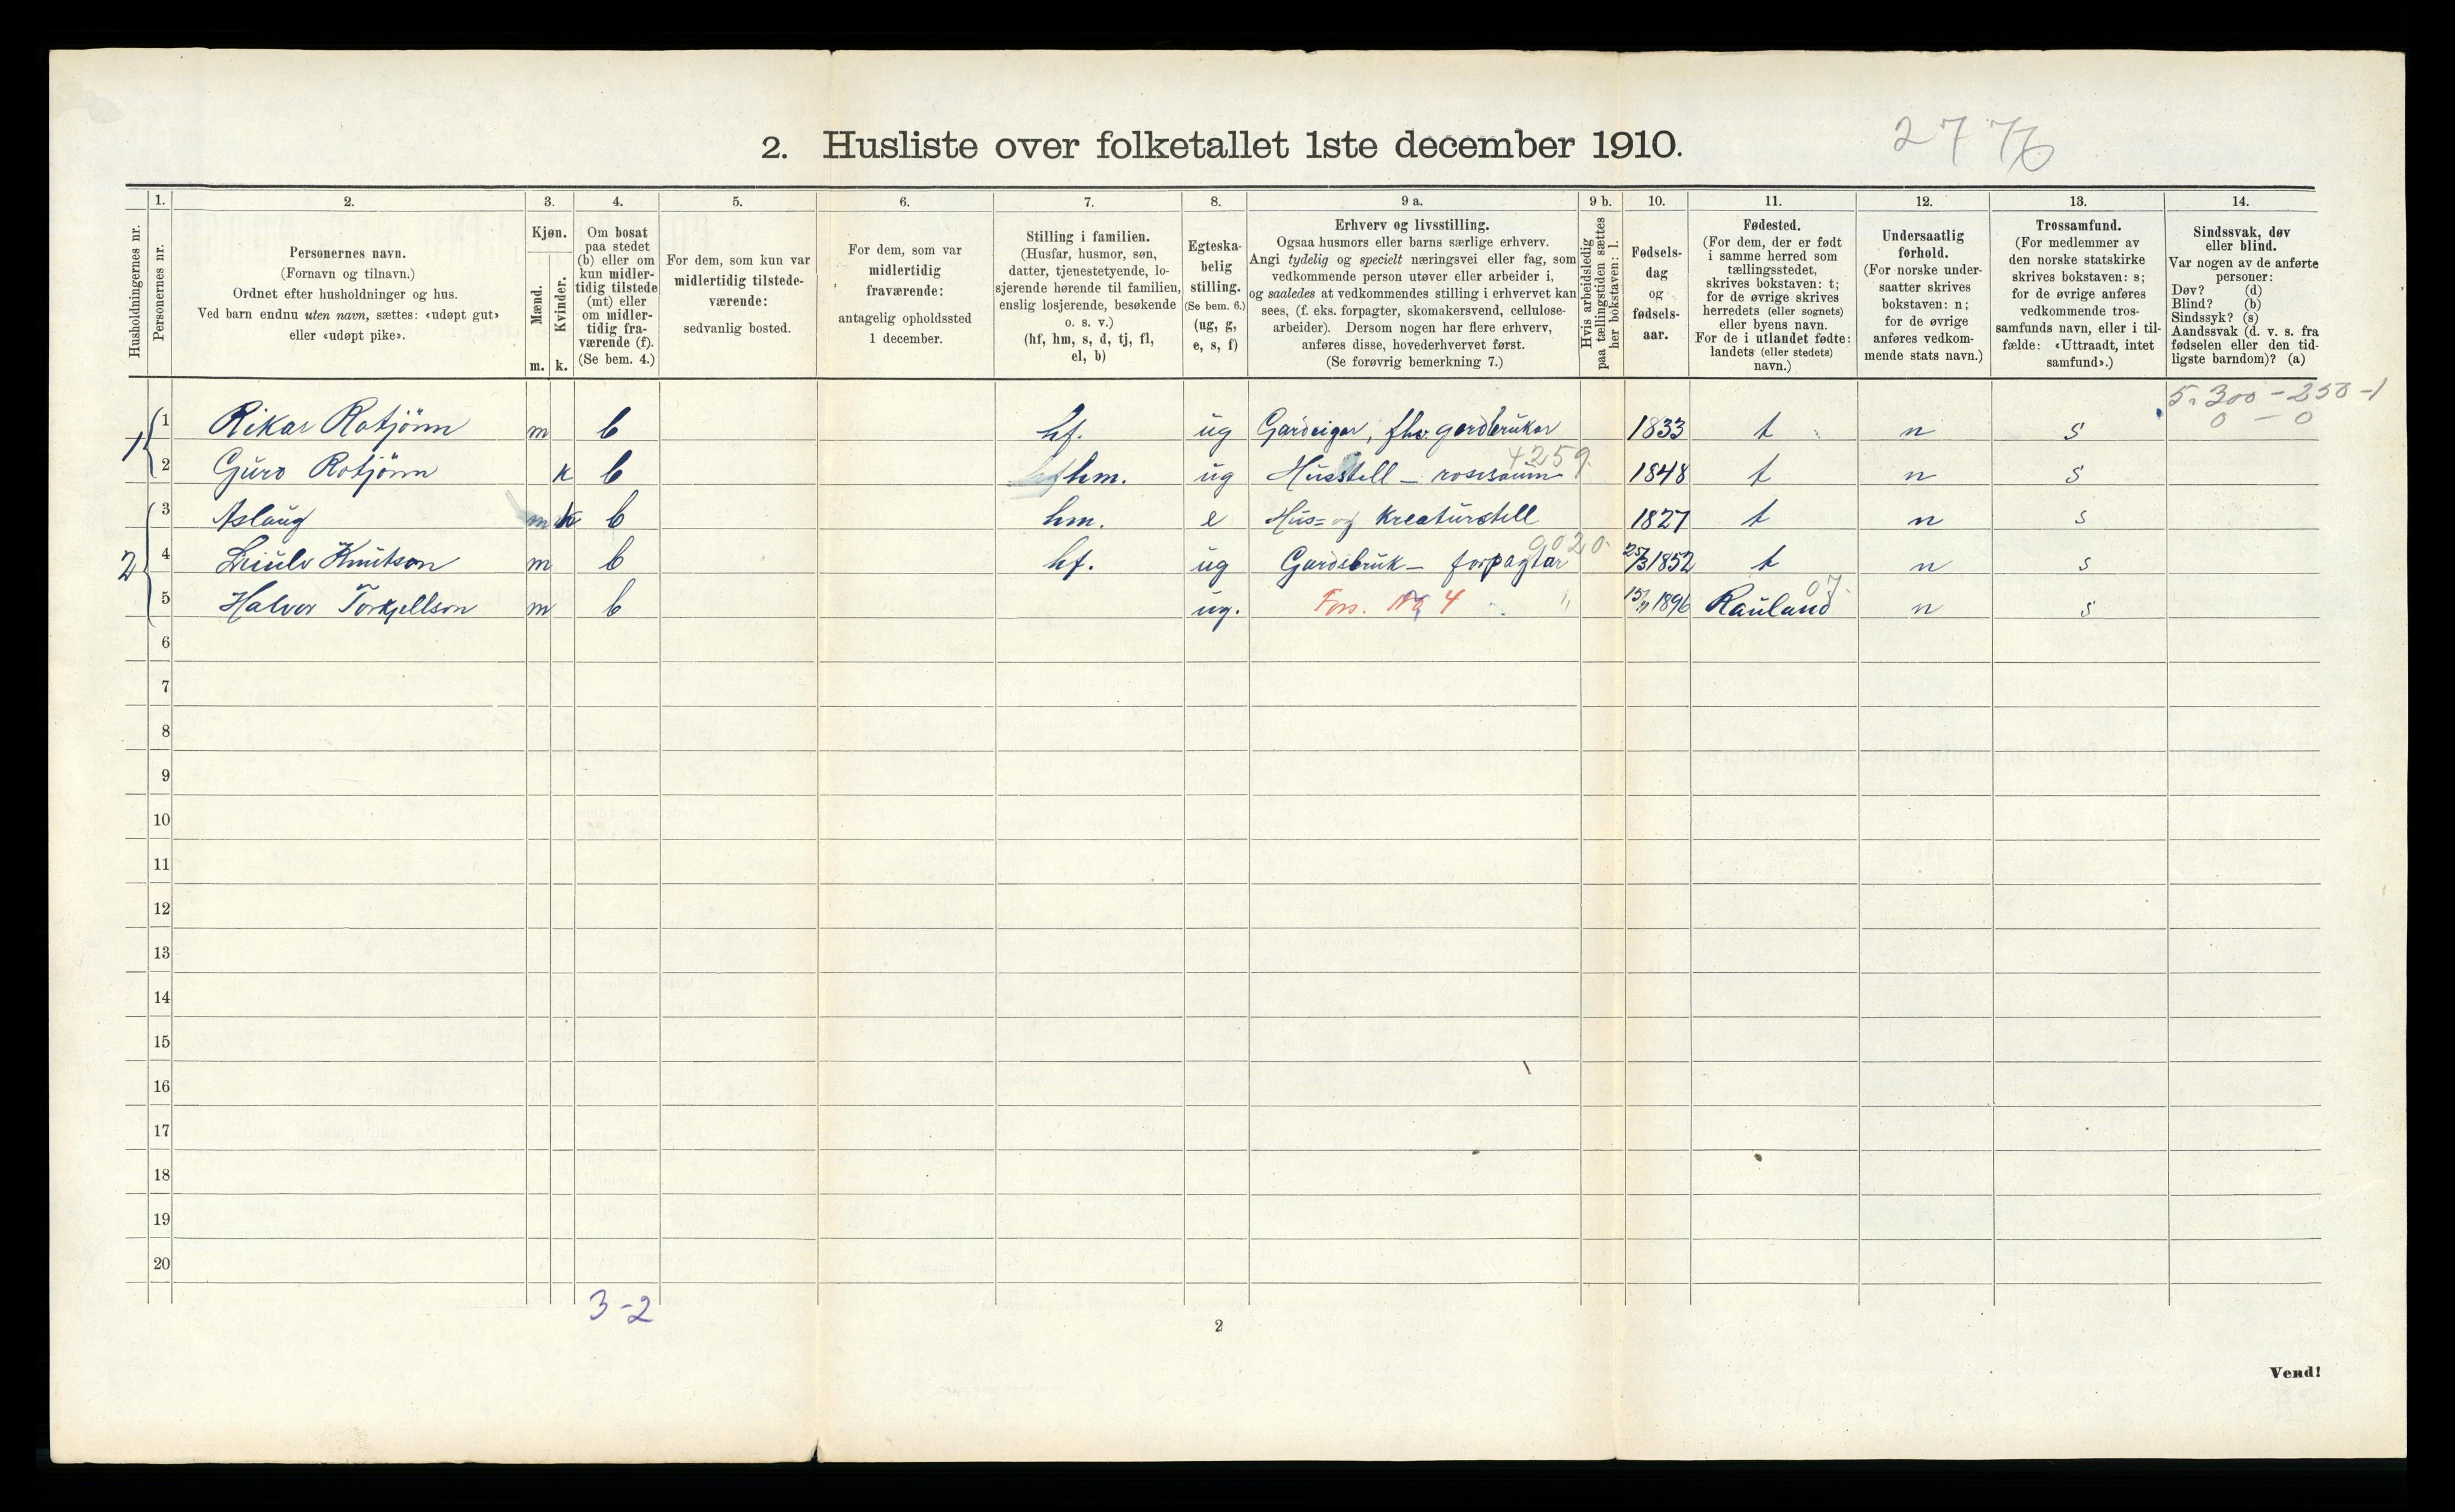 2. Husliste over folketallet 1ste december 1910.
2776
Husholdningernes nr.
1. Personernes nr.
2. Personernes navn. (Fornavn og tilnavn.) Ordnet efter husholdninger og hus. Ved barn endnu uten navn, sættes: «udøpt gut» eller «udøpt pike».
3. Kjøn. Mænd. m. Kvinder. k.
4. Om bosat paa stedet (b) eller om kun midler-tidig tilstede (mt) eller om midler-tidig fra-værende (f). (Se bem. 4.)
5. For dem, som kun var midlertidig tilstede-værende: sedvanlig bosted.
6. For dem, som var midlertidig fraværende: antagelig opholdssted 1 december.
7. Stilling i familien. (Husfar, husmor, søn, datter, tjenestetyende, lo-sjerende hørende til familien, enslig losjerende, besøkende o. s. v.) (hf, hm, s, d, tj, fl, el, b)
8. Egteska-belig stilling. (Se bem. 6.) (ug, g, e, s, f)
9 a. Erhverv og livsstilling. Ogsaa husmors eller barns særlige erhverv. Angi tydelig og specielt næringsvei eller fag, som vedkommende person utøver eller arbeider i, og saaledes at vedkommendes stilling i erhvervet kan sees, (f. eks. forpagter, skomakersvend, cellulose-arbeider). Dersom nogen har flere erhverv, anføres disse, hovederhvervet først. (Se forøvrig bemerkning 7.)
9 b. Hvis arbeidsledig paa tællingstiden sættes her bokstaven: l.
10. Fødsels-dag og fødsels-aar.
11. Fødested. (For dem, der er født i samme herred som tællingsstedet, skrives bokstaven: t; for de øvrige skrives herredets (eller sognets) eller byens navn. For de i utlandet fødte: landets (eller stedets) navn.)
12. Undersaatlig forhold. (For norske under-saatter skrives bokstaven: n; for de øvrige anføres vedkom-mende stats navn.)
13. Trossamfund. (For medlemmer av den norske statskirke skrives bokstaven: s; for de øvrige anføres vedkommende tros-samfunds navn, eller i til-fælde: «Uttraadt, intet samfund».)
14. Sindssvak, døv eller blind. Var nogen av de anførte personer: Døv? (d) Blind? (b) Sindssyk? (s) Aandssvak (d. v. s. fra fødselen eller den tid-ligste barndom)? (a)
5.300 - 250 - 1
0 - 0
1 1 Rikar Rotjönn m b hf. ug Gardeigar, fhv. gardbrukar 1833 t n s
4259
2 Guro Rotjönn k b hm. ug Husstell - rosesaum 1848 t n s
2 3 Aslaug k b hm. e Hus- og Kreaturstell 1827 t n s
9020.
4 Leiulv Knutson m b hf. ug Gardsbruk - forpagtar 25/3 1852 t n s
07.
5 Halvor Torkjellson m b ug. Fors. 4 " 15/11 1896 Rauland n s
6
7
8
9
10
11
12
13
14
15
16
17
18
19
20
3-2
2
Vend!